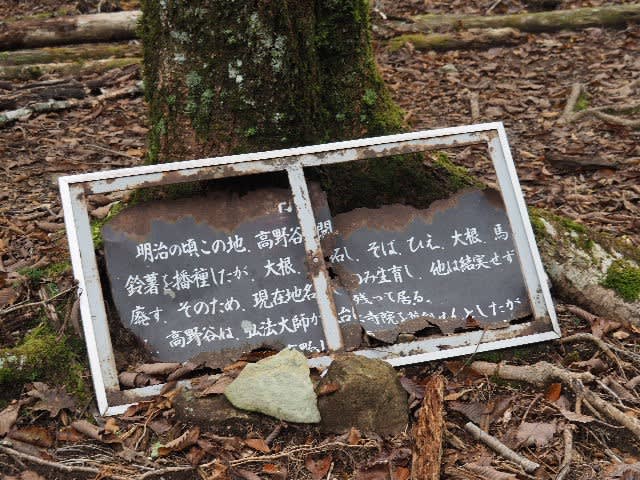 明治の頃この地、高野谷 開 し、そば、ひえ、大根、馬
鈴薯を播種したが、大根、 のみ生育し、他は結実せず
廃す、そのため、現在地名 残って居る。
高野谷は、弘法大師が 当に寺院を としたが
高野